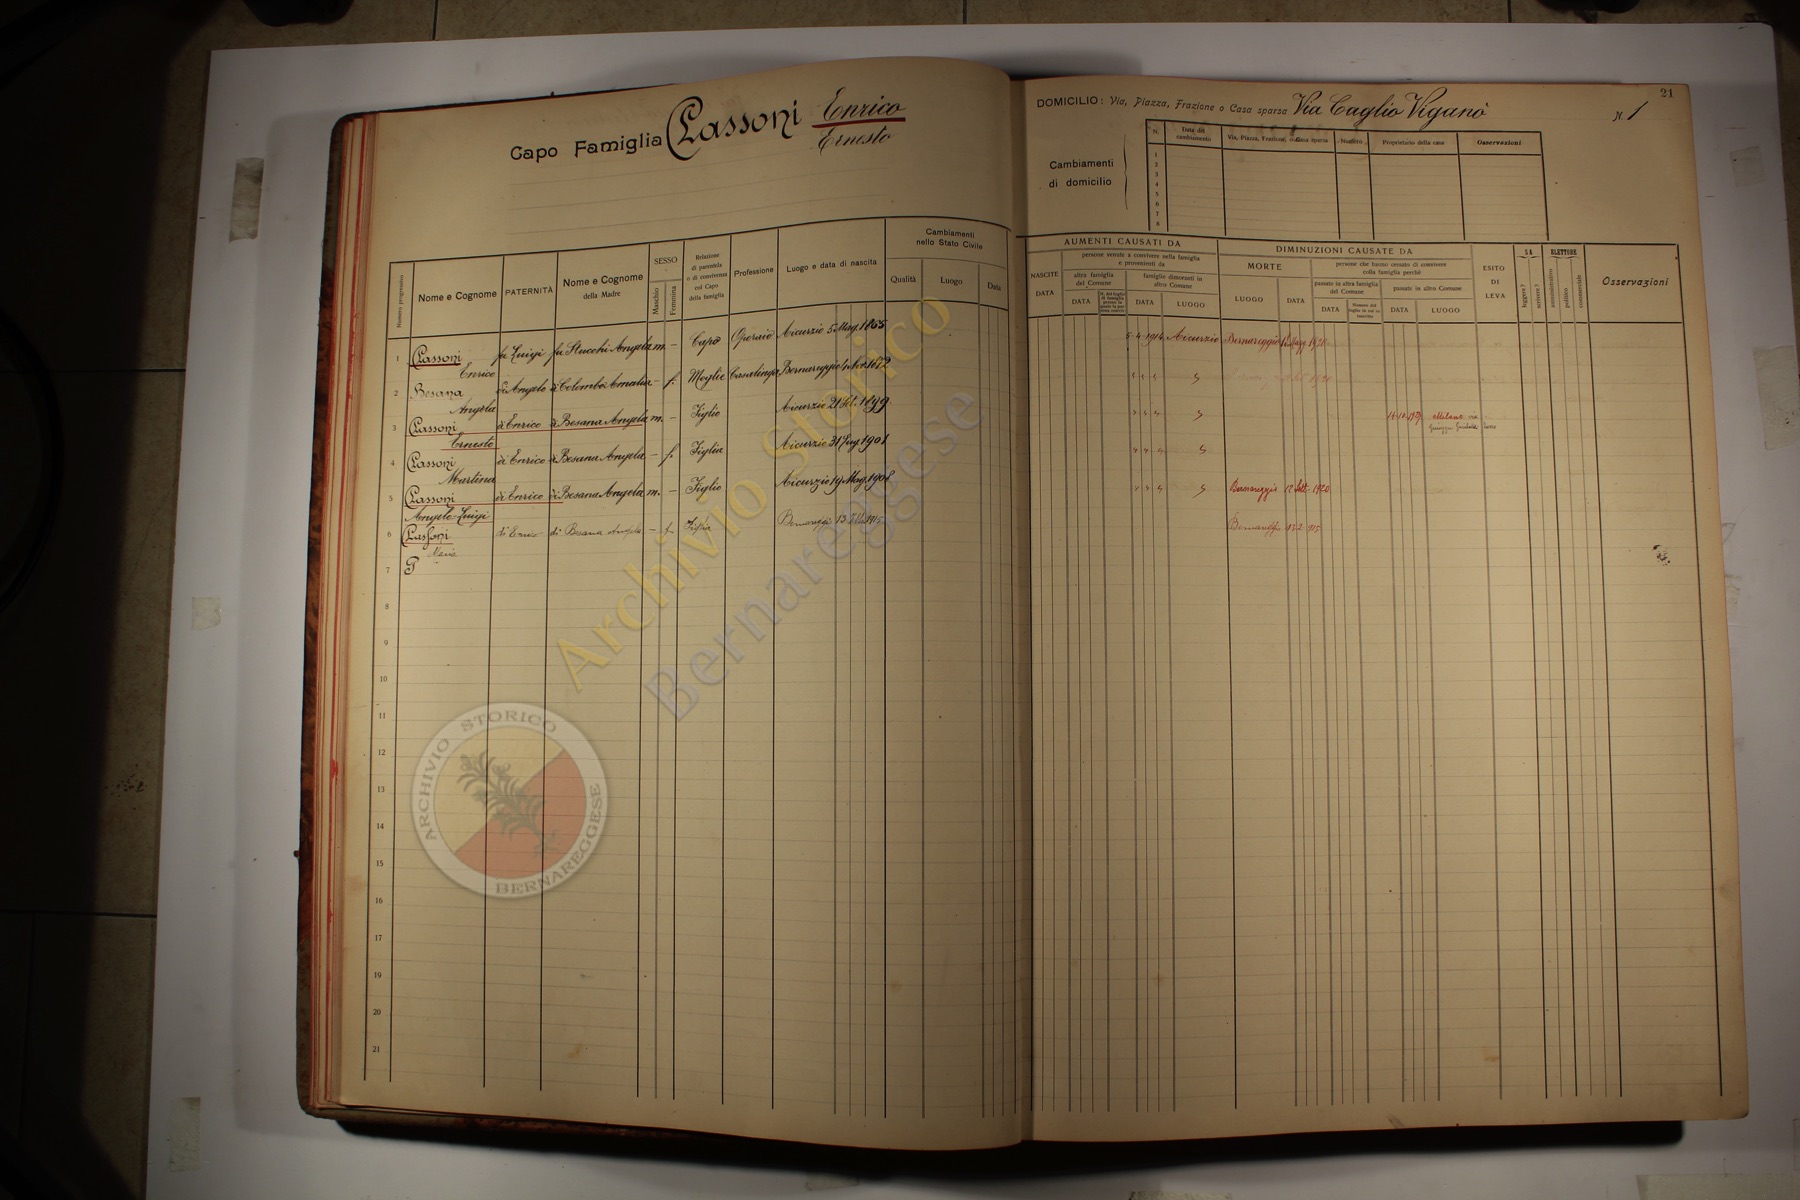 21
Capo Famiglia Classoni Enrico
Ernesto
DOMICILIO: Via, Piazza, Frazione o Casa sparsa Via Caglio Viganò N. 1
Cambiamenti
di domicilio
N. Data del cambiamento Via, Piazza, Frazione, o Casa sparsa Numero Proprietario della casa Osservazioni
1
2
3
4
5
6
7
8
Numero progressivo
Nome e Cognome
PATERNITÀ
Nome e Cognome
della Madre
SESSO
Maschio
Femmina
Relazione
di parentela
o di convivenza
col Capo
della famiglia
Professione
Luogo e data di nascita
Cambiamenti
nello Stato Civile
Qualità Luogo Data
NASCITE
DATA
AUMENTI CAUSATI DA
persone venute a convivere nella famiglia
e provenienti da
altra famiglia
del Comune
DATA
famiglie dimoranti in
altro Comune
DATA LUOGO
DIMINUZIONI CAUSATE DA
MORTE
LUOGO DATA
persone che hanno cessato di convivere
colla famiglia perchè
passate in altra famiglia
del Comune
DATA
passate in altro Comune
DATA LUOGO
ESITO
DI
LEVA
SA
leggere?
scrivere?
ELETTORE
amministrativo
politico
commerciale
Osservazioni
1 Classoni fu Luigi fu Stucchi Angela m. – Capo Operaio Aicurzio 5 Mag. 1865 5-4-1914 Aicurzio Bernareggio
Enrico
2 Besana di Angelo di Colombo Amalia – f. Moglie Casalinga Bernareggio 4 Nov. 1872
Angela
3 Classoni di Enrico di Besana Angela m. – Figlio Aicurzio 21 Set. 1899 Milano
Ernesto
4 Classoni di Enrico di Besana Angela – f. Figlia Aicurzio 31 Lug. 1901
Martina
5 Classoni di Enrico di Besana Angela m. – Figlio Aicurzio 19 Mag. 1908 Bernareggio 12 Sett. 1920
Angelo Luigi
6 Classoni di Enrico di Besana Angela – f. Figlia Bernareggio 13 1915 Bernareggio 13-2-915
Maria
7
8
9
10
11
12
13
14
15
16
17
18
19
20
21
Archivio Storico
Bernareggese
ARCHIVIO STORICO
BERNAREGGESE